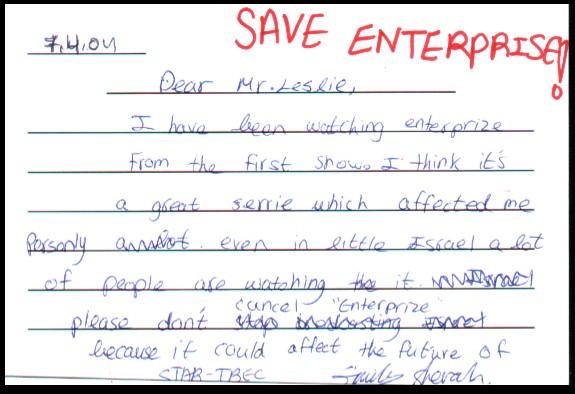 7.4.04
SAVE ENTERPRISE!
Dear Mr. Leslie,
I have been watching enterprize
From the first show. I think it's
a great serrie which affected me
Personly even in little Israel a lot
of people are watching the it. Israel
cancel "Enterprize"
please don't stop
because it could affect the future of
STAR-TREC